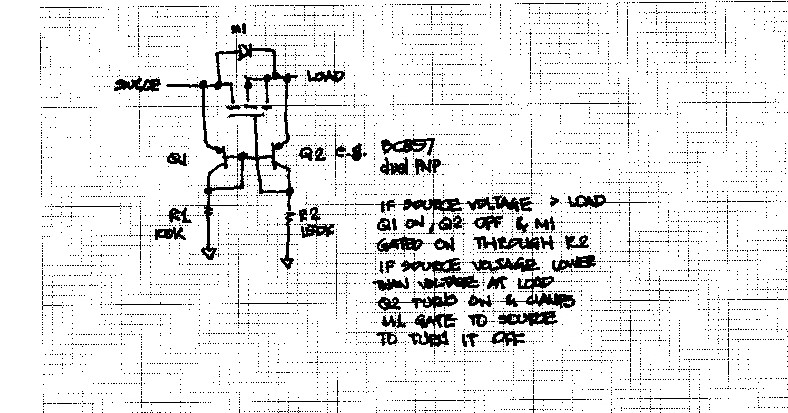 M1
SOURCE
LOAD
Q1
Q2 e.g. BC857
dual PNP
R1
R2
150K
IF SOURCE VOLTAGE > LOAD
Q1 ON, Q2 OFF & M1
GATED ON THROUGH R2
IF SOURCE VOLTAGE LOWER
THAN VOLTAGE AT LOAD
Q2 TURNS ON & CLAMPS
M1 GATE TO SOURCE
TO TURN IT OFF